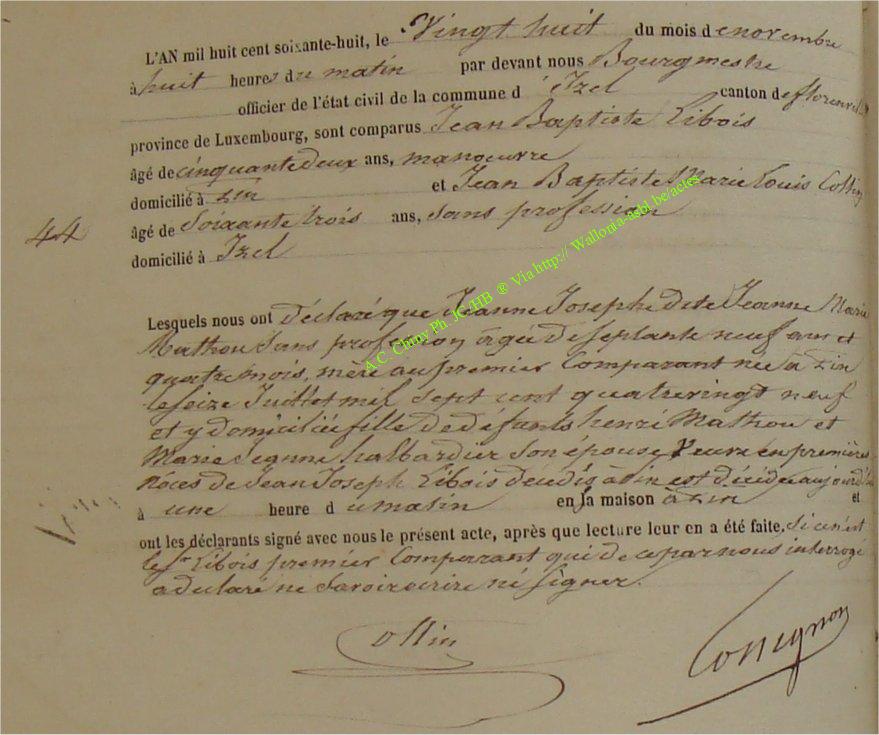 L'AN mil huit cent soixante-huit, le Vingt huit du mois de novembre
à huit heures du matin par devant nous Bourgmestre
officier de l'état civil de la commune d'Izel canton de florenville
province de Luxembourg, sont comparus Jean Baptiste Libois
âgé de cinquante deux ans, manoeuvre
domicilié à Pin et Jean Baptiste Marie Louis Collin
44
âgé de Soixante trois ans, sans profession
domicilié à Izel
A.C. Chiny Ph. JG/HB ® Via http:// Wallonia-asbl.be/actes
Lesquels nous ont déclaré que Jeanne Josephe dite Jeanne Marie
Mathou sans profession âgée de septante neuf ans et
quatre mois, mère au premier Comparant née à Pin
le seize Juillet mil sept cent quatrevingt neuf
et y domiciliée fille de défunts henri Mathou et
Marie Jeanne halbardier son épouse Veuve en premières
Noces de Jean Joseph Libois décédés à Pin est décédée aujourd'hui
à une heure du matin en sa maison à Pin et
ont les déclarants signé avec nous le présent acte, après que lecture leur en a été faite, Si ce n'est
le Sr Libois premier Comparant qui de ce par nous interrogé
a déclaré ne savoir écrire né signer.
Collin